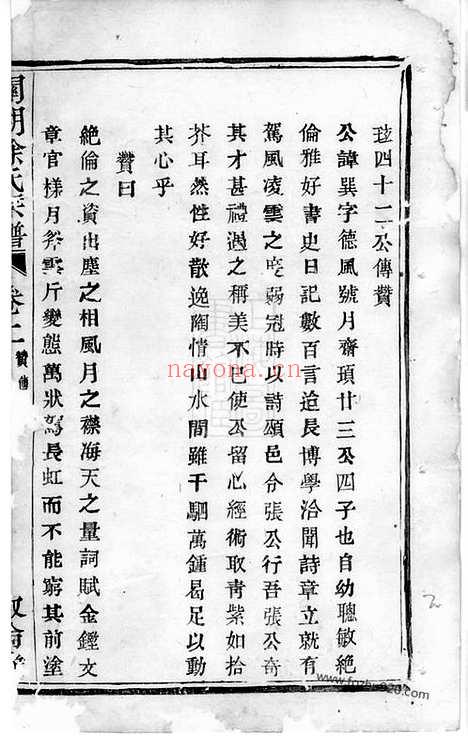 珓四十二公傳贊
公諱巽字德風號月齋頊廿三公四子也自幼聰敏絶
倫雅好書史日記數百言迨長博學洽聞詩章立就有
駕風凌雲之度弱冠時以詩頌邑令張公行吾張公奇
其才甚禮遇之稱美不已使公留心經術取青紫如拾
芥耳然性好散逸陶情山水間雖千駟萬鍾曷足以動
其心乎
贊曰
絶倫之資出塵之相風月之襟海天之量詞賦金鏗文
章官樣月祭雲斤變態萬狀駕長虹而不能窮其前塗
徐氏宗譜
卷二
贊傳
nayona.cn
www.fozhu920.com